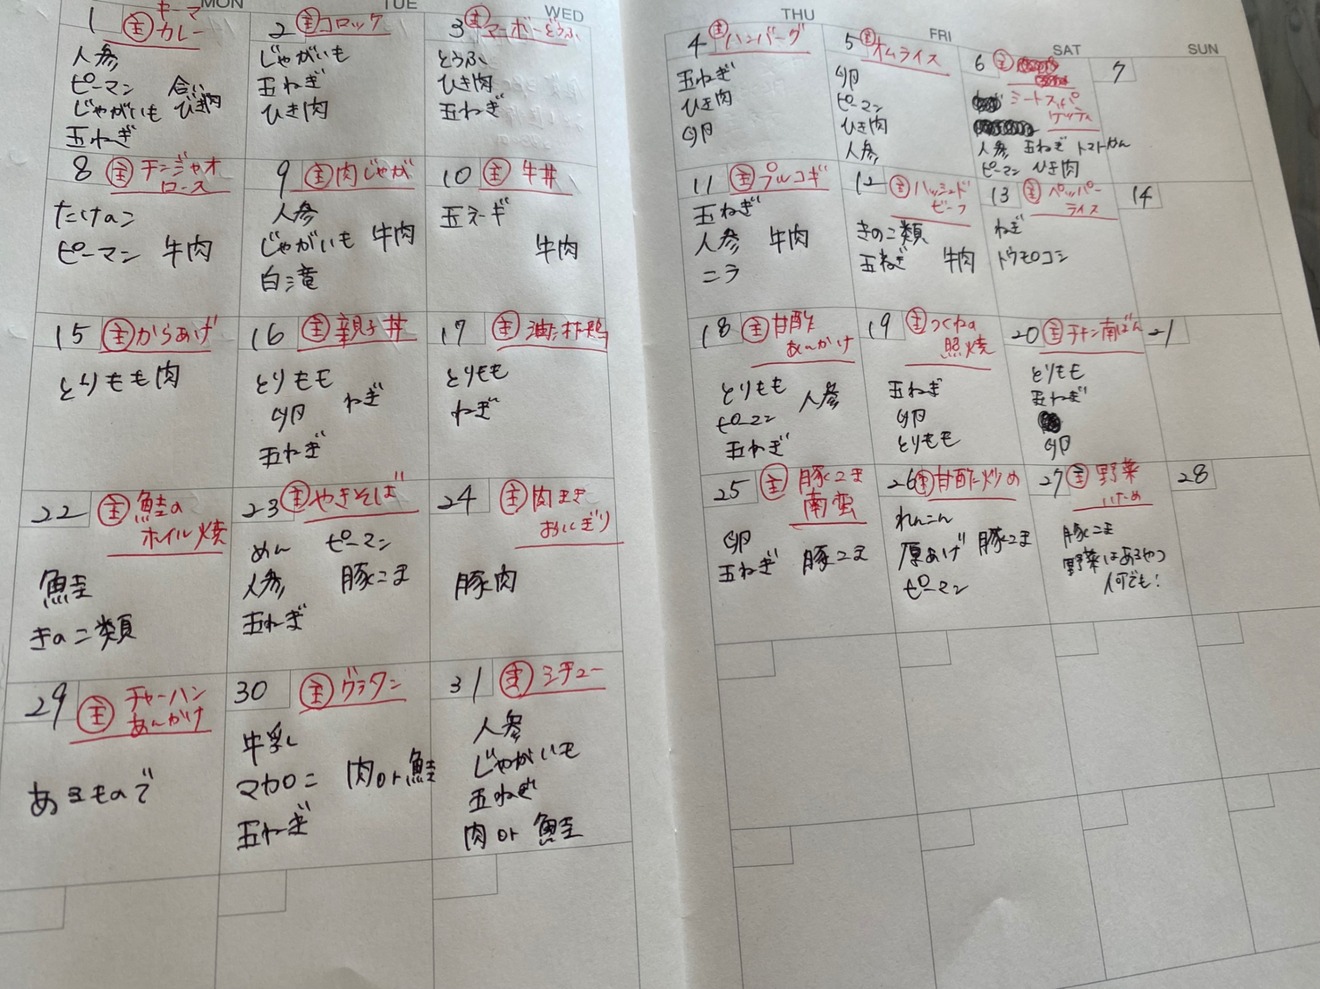 MON
TUE
WED
THU
FRI
SAT
SUN
1 主 キーマ
カレー
人参
ピーマン 合い
じゃがいも ひき肉
玉ねぎ
2 主 コロッケ
じゃがいも
玉ねぎ
ひき肉
3 主 マーボーどうふ
とうふ
ひき肉
玉ねぎ
4 主 ハンバーグ
玉ねぎ
ひき肉
卵
5 主 オムライス
卵
ピーマン
ひき肉
人参
6 主
ミートスパ
ゲッティ
人参 玉ねぎ トマトかん
ピーマン ひき肉
7
8 主 チンジャオ
ロース
たけのこ
ピーマン 牛肉
9 主 肉じゃが
人参
じゃがいも 牛肉
白滝
10 主 牛丼
玉ネギ
牛肉
11 主 プルコギ
玉ねぎ
人参 牛肉
ニラ
12 主 ハッシュド
ビーフ
きのこ類
玉ねぎ 牛肉
13 主 ペッパー
ライス
ねぎ
トウモロコシ
14
15 主 からあげ
とりもも肉
16 主 親子丼
とりもも
卵 ねぎ
玉ねぎ
17 主 油淋鶏
とりもも
ねぎ
18 主 甘酢
あんかけ
とりもも 人参
ピーマン
玉ねぎ
19 主 つくねの
照焼
玉ねぎ
卵
とりもも
20 主 チキン南ばん
とりもも
玉ねぎ
卵
21
22 主 鮭の
ホイル焼
鮭
きのこ類
23 主 やきそば
めん ピーマン
人参 豚こま
玉ねぎ
24 主 肉まき
おにぎり
豚肉
25 主 豚こま
南蛮
卵
玉ねぎ 豚こま
26 主 甘酢炒め
れんこん
厚あげ 豚こま
ピーマン
27 主 野菜
いため
豚こま
野菜はあるやつ
何でも!
28
29 主 チャーハン
あんかけ
あるもので
30 主 グラタン
牛乳
マカロニ 肉or鮭
玉ねぎ
31 主 シチュー
人参
じゃがいも
玉ねぎ
肉 or 鮭